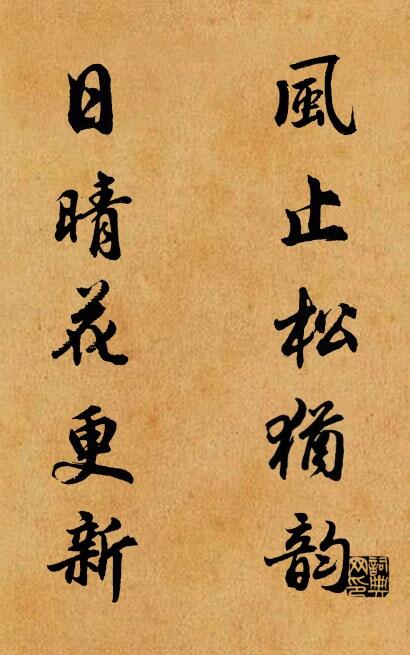 風止松猶韵
日晴花更新
詞典网印